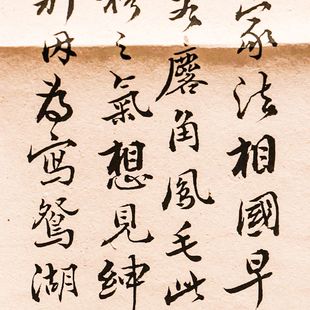 家法相國早
麐角鳳毛此
之氣想見紳
因為寫鴛湖